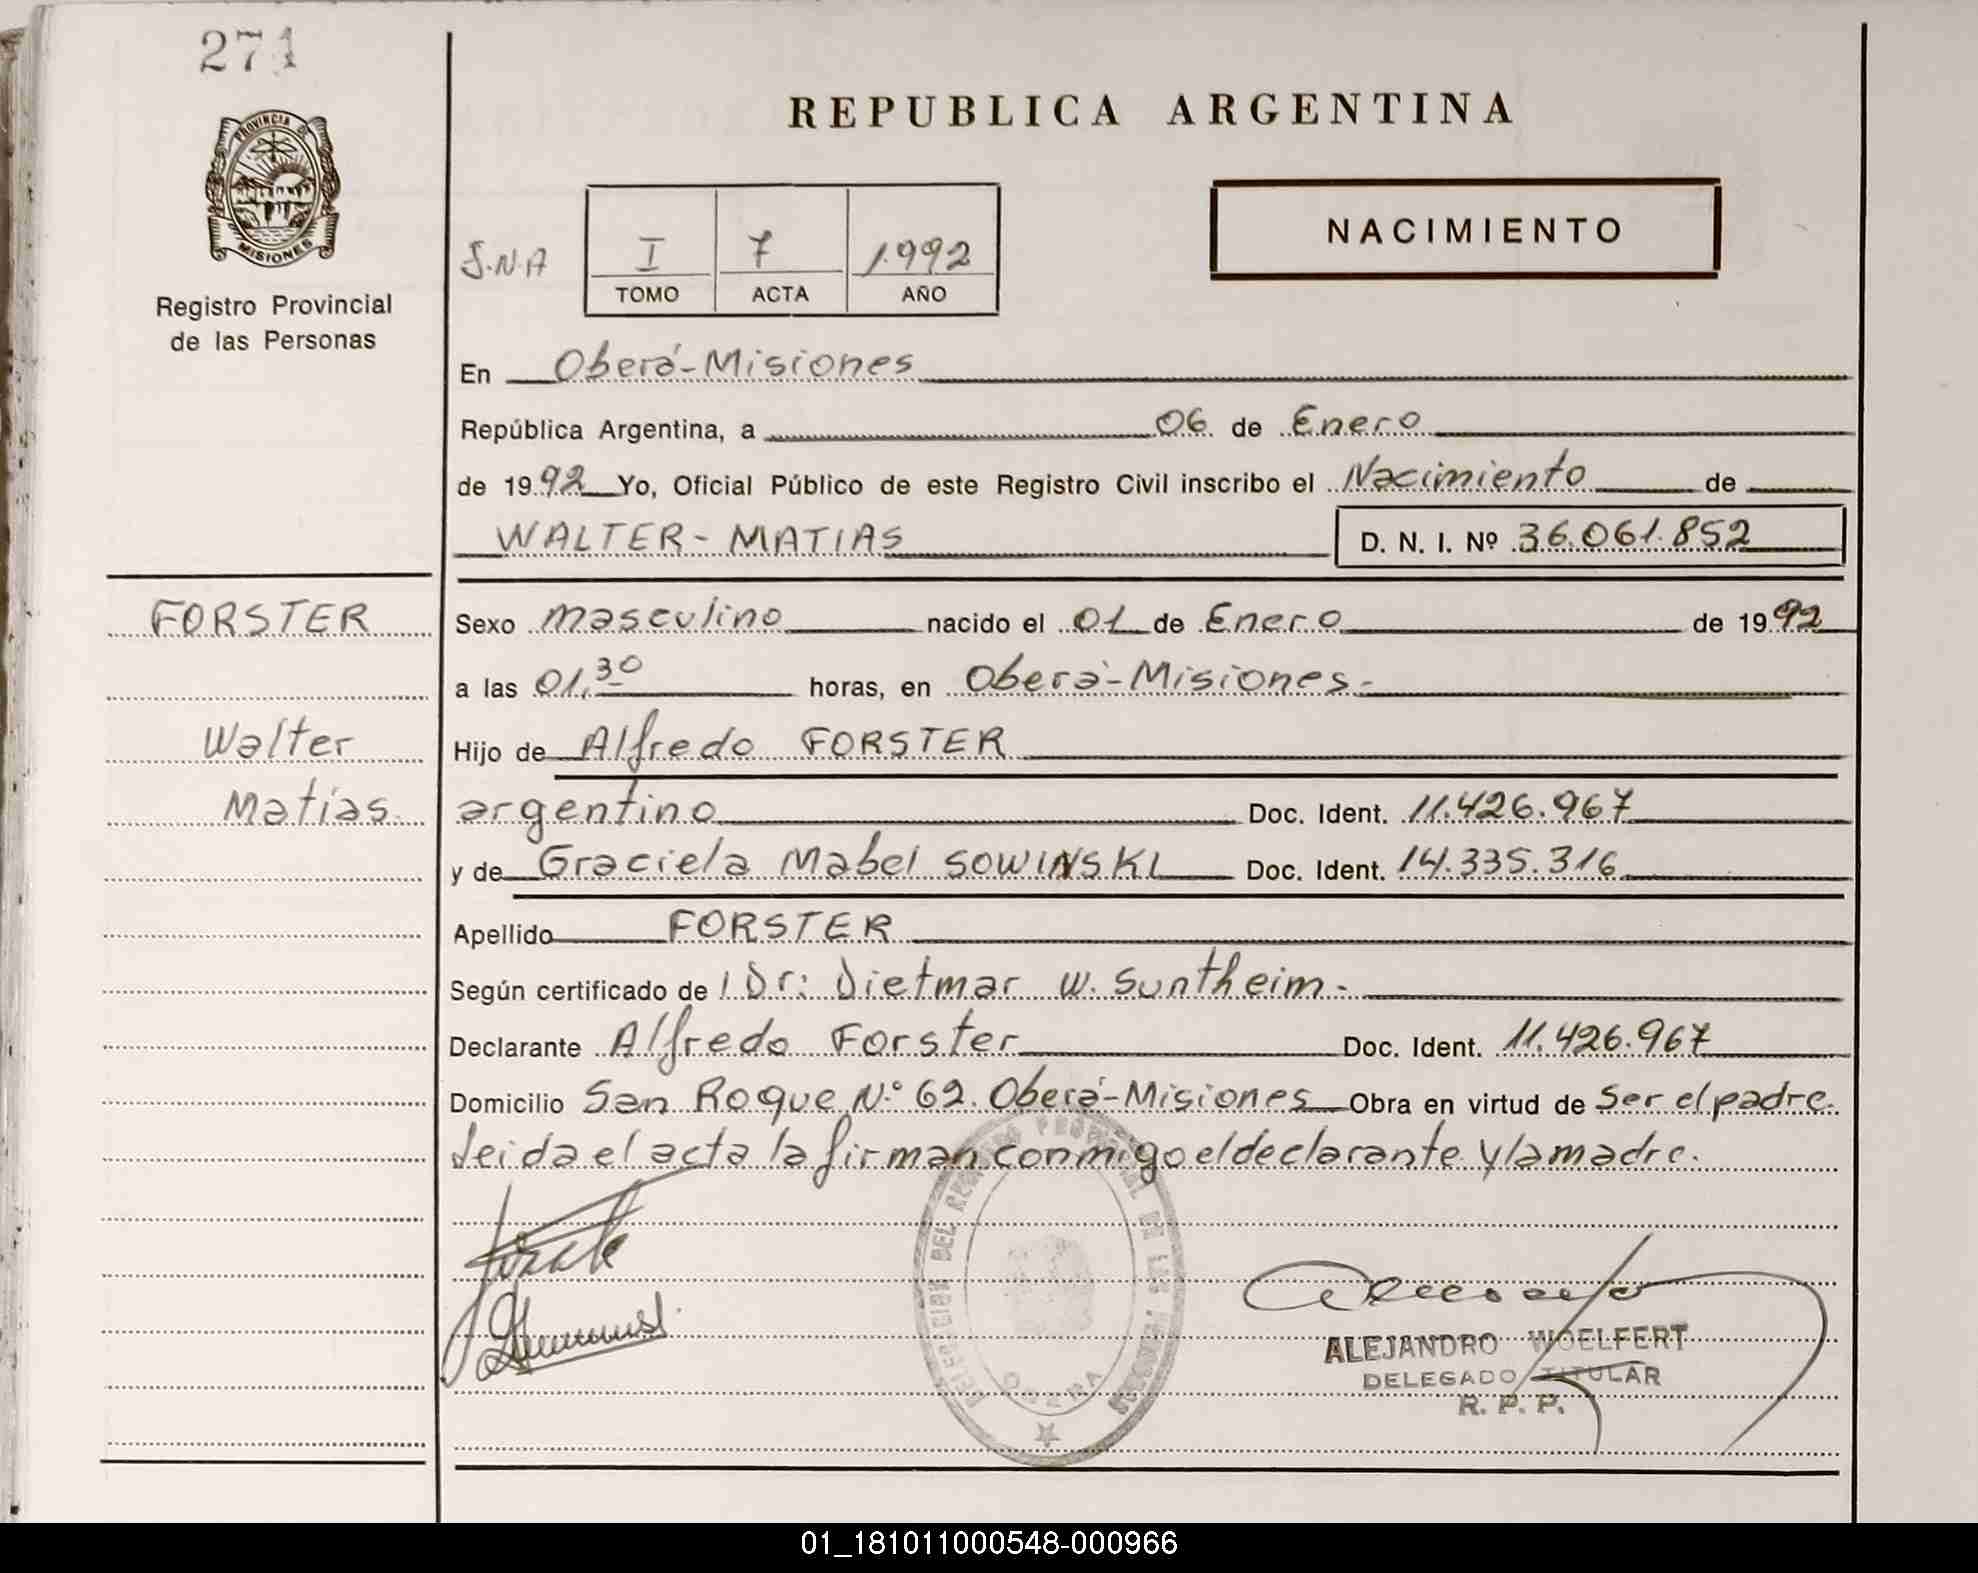 271
PROVINCIA DE
MISIONES
Registro Provincial
de las Personas
REPUBLICA ARGENTINA
NACIMIENTO
S.N.A
I 7 1.992
TOMO ACTA AÑO
En Oberá-Misiones
República Argentina, a 06 de Enero
de 1992 Yo, Oficial Público de este Registro Civil inscribo el Nacimiento de
WALTER-MATIAS D. N. I. Nº 36.061.852
FORSTER
Walter
Matias.
Sexo masculino nacido el 01 de Enero de 1992
a las 01,30 horas, en Oberá-Misiones.-
Hijo de Alfredo FORSTER
argentino Doc. Ident. 11.426.967
y de Graciela Mabel SOWINSKI Doc. Ident. 14.335.316
Apellido FORSTER
Según certificado de l Dr: Dietmar W. Suntheim.-
Declarante Alfredo Forster Doc. Ident. 11.426.967
Domicilio San Roque N.º 62. Oberá-Misiones Obra en virtud de Ser el padre.
Leida el acta la firman conmigo el declarante y la madre.
DELEGACION DEL REGISTRO PROVINCIAL DE LAS PERSONAS
OBERA
ALEJANDRO WOELFERT
DELEGADO TITULAR
R. P. P.
01_181011000548-000966